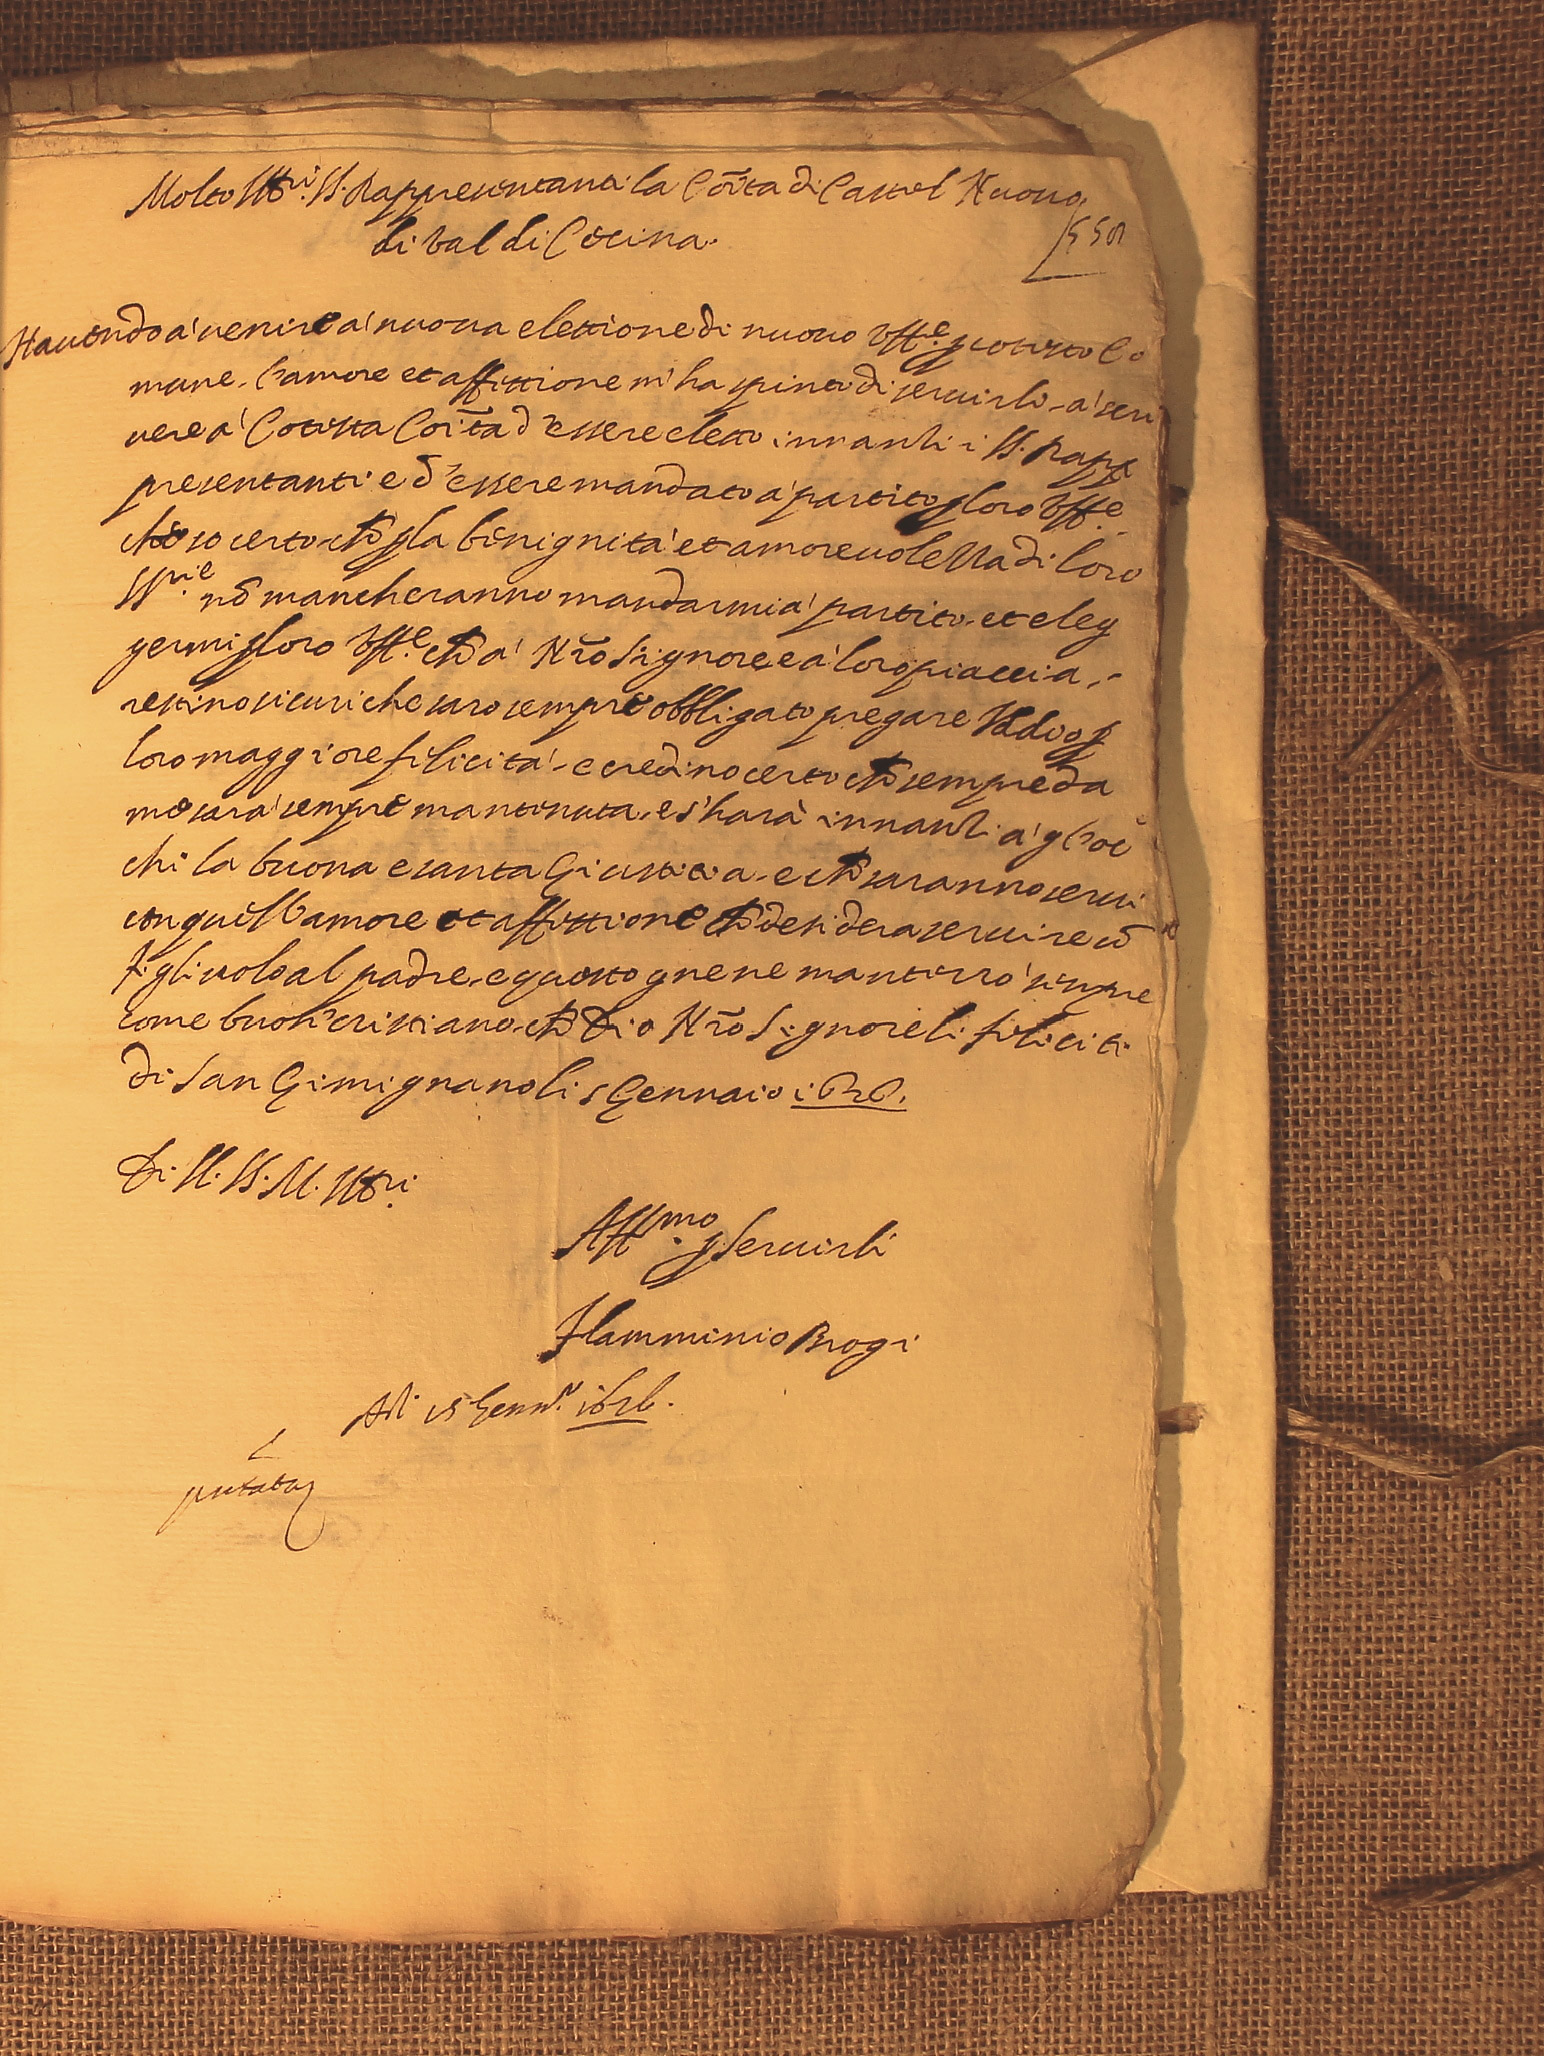 Molto Ill.ri SS. Rappresentanti la Com.ta di Castel Nuovo
di Val di Cecina.
550
Havendo a' venire a' nuova elettione di nuovo Uff.e p cotesto Co
mune. l'amore et affettione m'ha spinto di servirli, a' scri
vere a' Cotesta Com.ta d'essere eletto innanzi i SS. Rapp
presentanti e d'essere mandato a' partito p loro Uff.e
che so certo che p la benignità et amorevolezza di loro
SS.rie nō mancheranno mandarmi a' partito, et eleg
germi p loro Uff.e che a' Nrō Signore e a' loro piaccia,
restino sicuri che saro sempre obbligato pregare Iddio p
loro maggiore filicita' e credino certo che sempre da
me sara' sempre mantenuta, e s'harà innanzi a' gl'oc
chi la buona e santa Giustitia e che saranno servi
con quell'amore et affettione che desidera servire ū
figliuolo al padre, e questo gnene manterrò sempre
come buon' cristiano, che Dio Nrō Signore li feliciti
di San Gimignano li 5 Gennaio 1626.
Di VV. SS. M. Ill.ri
Aff.mo p Servirli
Flamminio Brogi
Adi 15 Genn.o 1626.